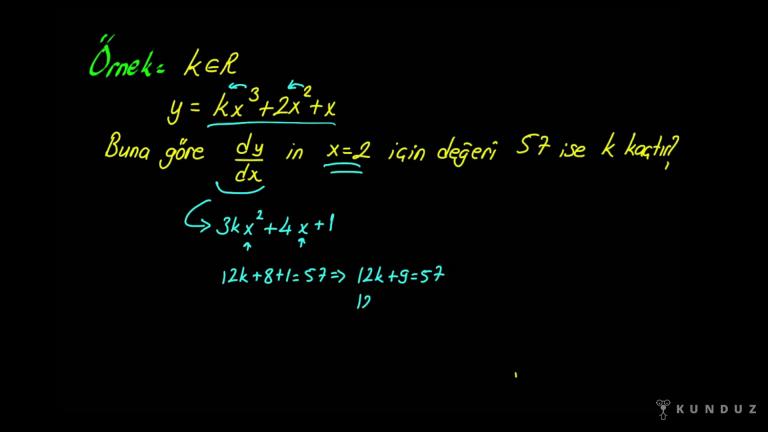 Örnek= k∈R
y = kx³+2x²+x
Buna göre dy/dx in x=2 için değeri 57 ise k kaçtır?
3kx²+4x+1
12k+8+1=57⇒ 12k+9=57
12
KUNDUZ